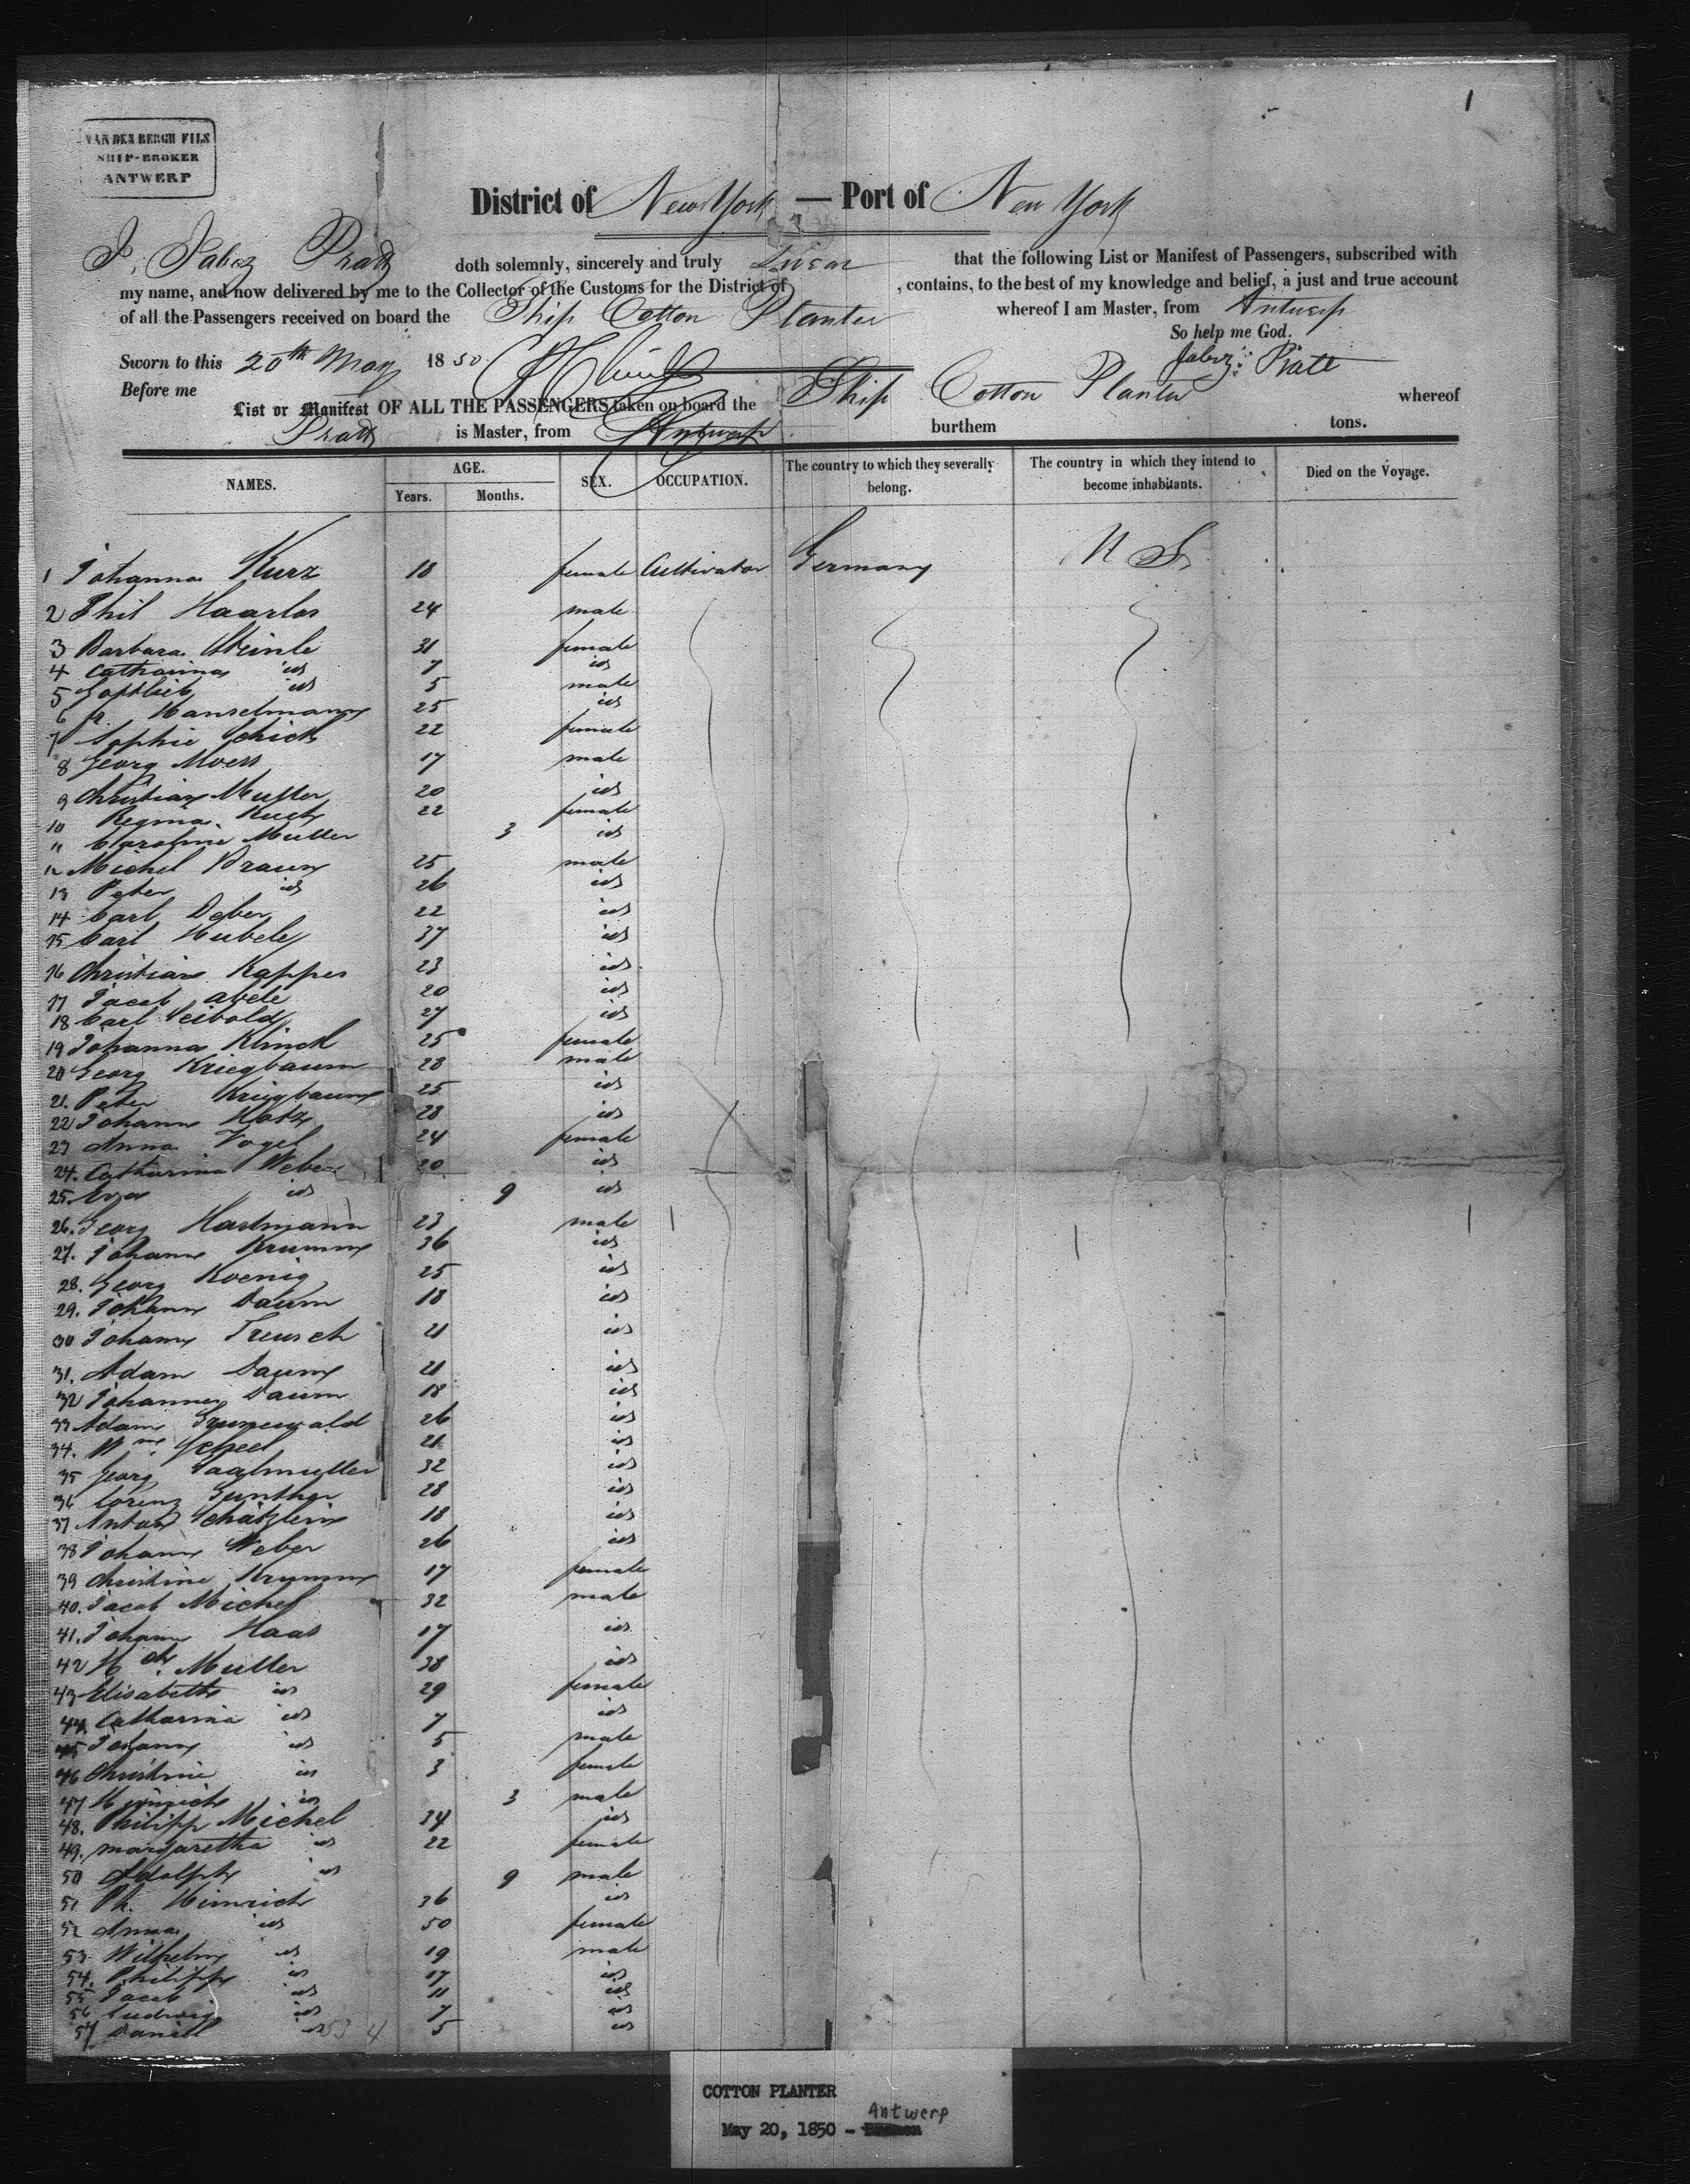 1
VAN DEN BERGH FILS
SHIP-BROKER
ANTWERP
District of New York — Port of New York
I, Jabez Pratt doth solemnly, sincerely and truly Swear that the following List or Manifest of Passengers, subscribed with
my name, and now delivered by me to the Collector of the Customs for the District of , contains, to the best of my knowledge and belief, a just and true account
of all the Passengers received on board the Ship Cotton Planter whereof I am Master, from Antwerp
So help me God.
Sworn to this 20th May 1850 Jabez Pratt
Before me
List or Manifest OF ALL THE PASSENGERS taken on board the Ship Cotton Planter whereof
Pratt is Master, from Antwerp burthem tons.
NAMES. AGE. Years. Months. SEX. OCCUPATION. The country to which they severally belong. The country in which they intend to become inhabitants. Died on the Voyage.
1 Johanna Kurz 18 female Cultivator Germany U S
2 Phil Haarlos 24 male
3 Barbara Steinle 31 female
4 Catharina id 7 id
5 Gottlieb id 5 male
6 fr. Hanselmann 25 id
7 Sophie Schick 22 female
8 Georg Moess 17 male
9 Christian Muller 20 id
10 Regina Kuch 22 female
11 Caroline Muller 3 id
12 Michel Braun 25 male
13 Peter id 26 id
14 Carl Deber 22 id
15 Carl Hubele 37 id
16 Christian Kappes 23 id
17 Jacob Abele 20 id
18 Carl Seibold 27 id
19 Johanna Klinck 25 female
20 Georg Kriegbaum 28 male
21. Peter Kriegbaum 25 id
22 Johann Hotz 28 id
23 Anna Vogel 24 female
24. Catharina Weber 20 id
25. Eva id 9 id
26. Georg Hartmann 23 male
27. Johann Krumm 36 id
28. Georg Koenig 25 id
29. Johann Daum 18 id
30 Johann Treusch 21 id
31. Adam Daum 21 id
32 Johannes Daum 18 id
33 Adam Grunewald 26 id
34. Wm. 21 id
35 Georg Saalmuller 32 id
36 Lorenz Gunther 28 id
37 Anton Schatzlein 18 id
38 Johann Weber 26 id
39 Christine Krumm 17 female
40. Jacob Michel 32 male
41. Johann Haas 17 id
42 Hch. Muller 38 id
43 Elisabeth id 29 female
44. Catharina id 7 id
45 Johann id 5 male
46 Christine id 3 female
47 Heinrich id 3 male
48. Philipp Michel 34 id
49. margaretha id 22 female
50 Adolph id 9 male
51 Ph. Heinrich 36 id
52 Anna id 50 female
53 Wilhelm id 19 male
54. Philipp id 17 id
55 Jacob id 11 id
56 Ludwig id 7 id
57 Daniel id 5 id
53 4
COTTON PLANTER
May 20, 1850 - Antwerp